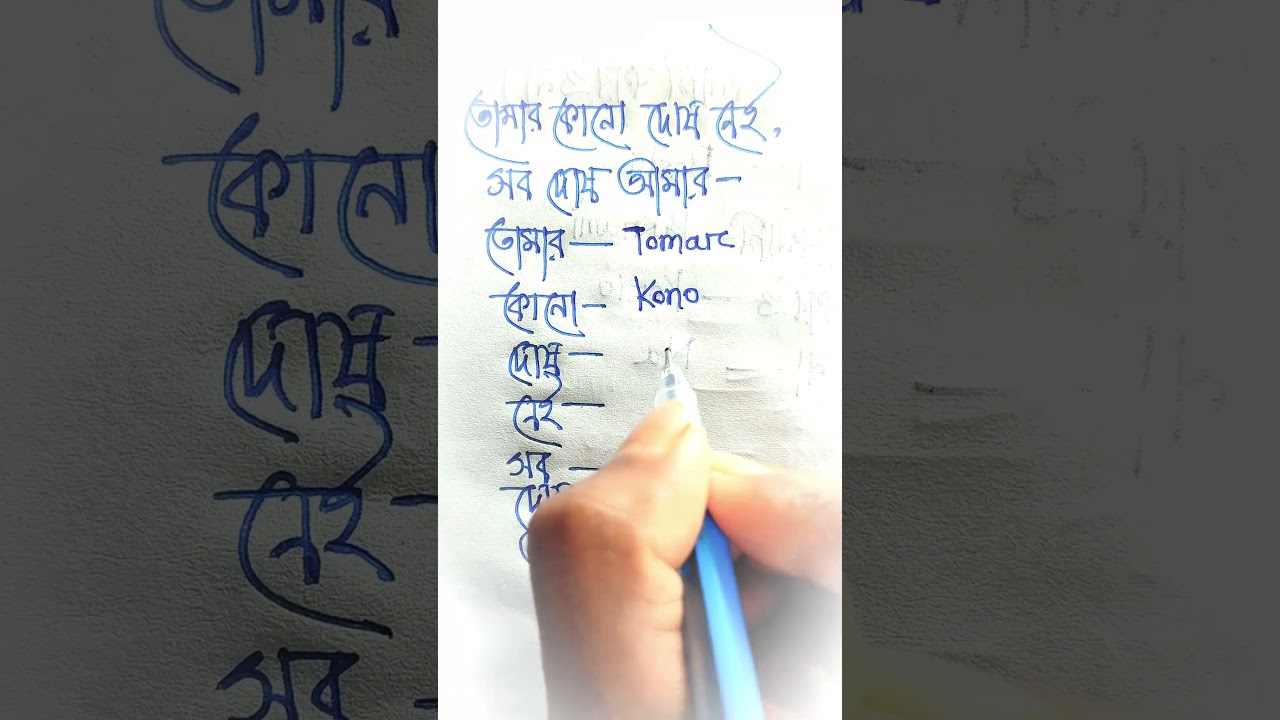 তোমার কোনো দোষ নেই,
সব দোষ আমার—
তোমার — Tomar
কোনো — Kono
দোষ —
নেই —
সব —